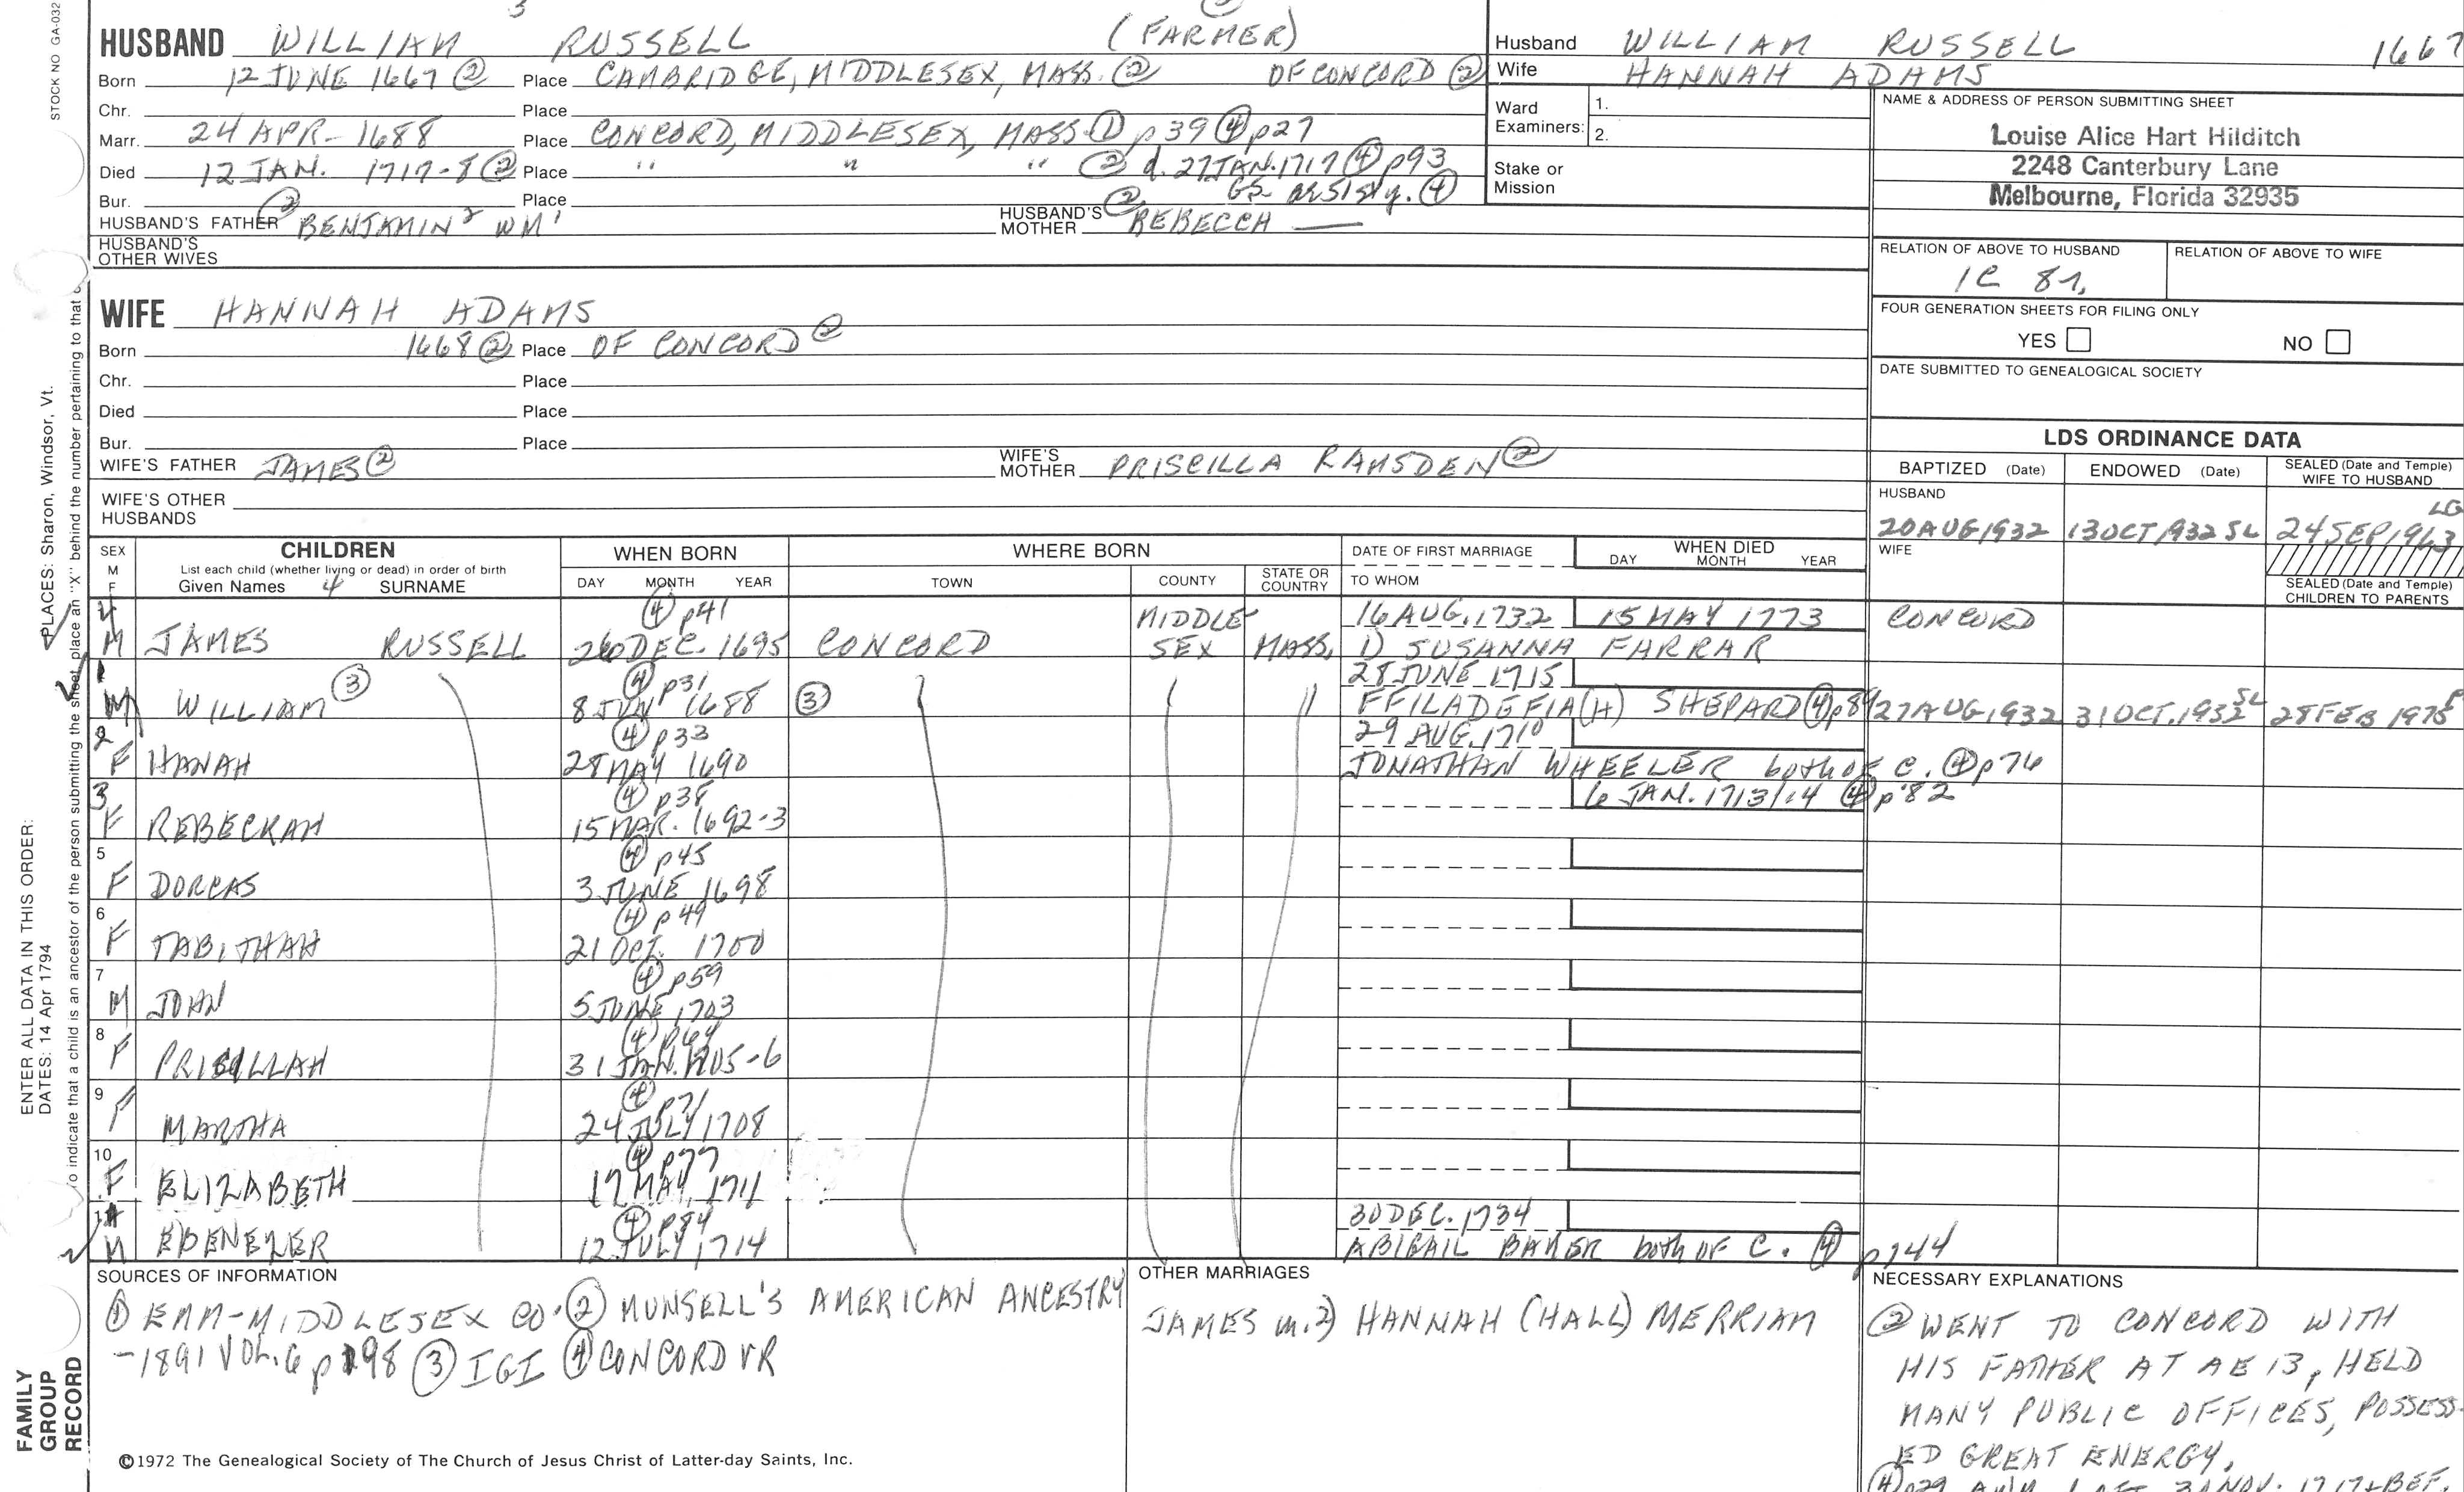 STOCK NO GA-032
HUSBAND WILLIAM RUSSELL (FARMER)
Born 12 JUNE 1667 ② Place CAMBRIDGE, MIDDLESEX, MASS. ② OF CONCORD ②
Chr. Place
Marr. 24 APR- 1688 Place CONCORD, MIDDLESEX, MASS. ① p39 ④ p27
Died 12 JAN. 1717-8 ② Place " " " ② d. 27 JAN. 1717 ④ p93
Bur. Place GS. ae 51 5/y. ④
HUSBAND'S FATHER ② BENJAMIN² WM¹ HUSBAND'S MOTHER ② REBECCA —
HUSBAND'S OTHER WIVES
Husband WILLIAM RUSSELL 1667
Wife HANNAH ADAMS
Ward Examiners: 1.
2.
Stake or Mission
NAME & ADDRESS OF PERSON SUBMITTING SHEET
Louise Alice Hart Hilditch
2248 Canterbury Lane
Melbourne, Florida 32935
RELATION OF ABOVE TO HUSBAND RELATION OF ABOVE TO WIFE
1C 8
FOUR GENERATION SHEETS FOR FILING ONLY
YES NO
DATE SUBMITTED TO GENEALOGICAL SOCIETY
WIFE HANNAH ADAMS
Born 1668 ② Place OF CONCORD ②
Chr. Place
Died Place
Bur. Place
WIFE'S FATHER JAMES ② WIFE'S MOTHER PRISCILLA RAMSDEN ②
WIFE'S OTHER HUSBANDS
LDS ORDINANCE DATA
BAPTIZED (Date) ENDOWED (Date) SEALED (Date and Temple) WIFE TO HUSBAND
HUSBAND LG
20 AUG 1932 13 OCT 1932 SL 24 SEP 1963
WIFE
SEALED (Date and Temple) CHILDREN TO PARENTS
SEX M F CHILDREN WHEN BORN WHERE BORN DATE OF FIRST MARRIAGE WHEN DIED
List each child (whether living or dead) in order of birth
Given Names SURNAME DAY MONTH YEAR TOWN COUNTY STATE OR COUNTRY TO WHOM DAY MONTH YEAR
4 ④ p41 MIDDLE- 16 AUG. 1732 15 MAY 1773 CONCORD
M JAMES RUSSELL 26 DEC. 1695 CONCORD SEX MASS. 1) SUSANNA FARRAR
1 ④ p31 28 JUNE 1715
M WILLIAM ③ 8 JUN 1688 ③ " FFILADEFIA(H) SHEPARD ④ p84 27 AUG 1932 31 OCT. 1932 SL 28 FEB 1975 P
2 ④ p33 29 AUG. 1710
F HANAH 28 MAY 1690 JONATHAN WHEELER both OF C. ④ p76
3 ④ p38 6 JAN. 1713/14 ④ p82
F REBECKAH 15 MAR. 1692-3
5 ④ p45
F DORCAS 3 JUNE 1698
6 ④ p49
F TABITHAH 21 OCT. 1700
7 ④ p59
M JOHN 5 JUNE 1703
8 ④ p64
F PRISILLAH 31 JAN. 1705-6
9 ④ p71
F MARTHA 24 JULY 1708
10 ④ p77
F ELIZABETH 17 MAY, 1711
11 ④ p84 30 DEC. 1734
M EBENEZER 12 JULY 1714 ABIGAIL BAKER both OF C. ④ p144
SOURCES OF INFORMATION
① EMM-MIDDLESEX CO. ② MUNSELL'S AMERICAN ANCESTRY
-1891 VOL. 6 p198 ③ IGI ④ CONCORD VR
OTHER MARRIAGES
JAMES m. 2) HANNAH (HALL) MERRIAM
NECESSARY EXPLANATIONS
② WENT TO CONCORD WITH
HIS FATHER AT AE 13, HELD
MANY PUBLIC OFFICES, POSSESS-
ED GREAT ENERGY,
©1972 The Genealogical Society of The Church of Jesus Christ of Latter-day Saints, Inc.
FAMILY GROUP RECORD
ENTER ALL DATA IN THIS ORDER:
DATES: 14 Apr 1794 PLACES: Sharon, Windsor, Vt.
To indicate that a child is an ancestor of the person submitting the sheet, place an "X" behind the number pertaining to that